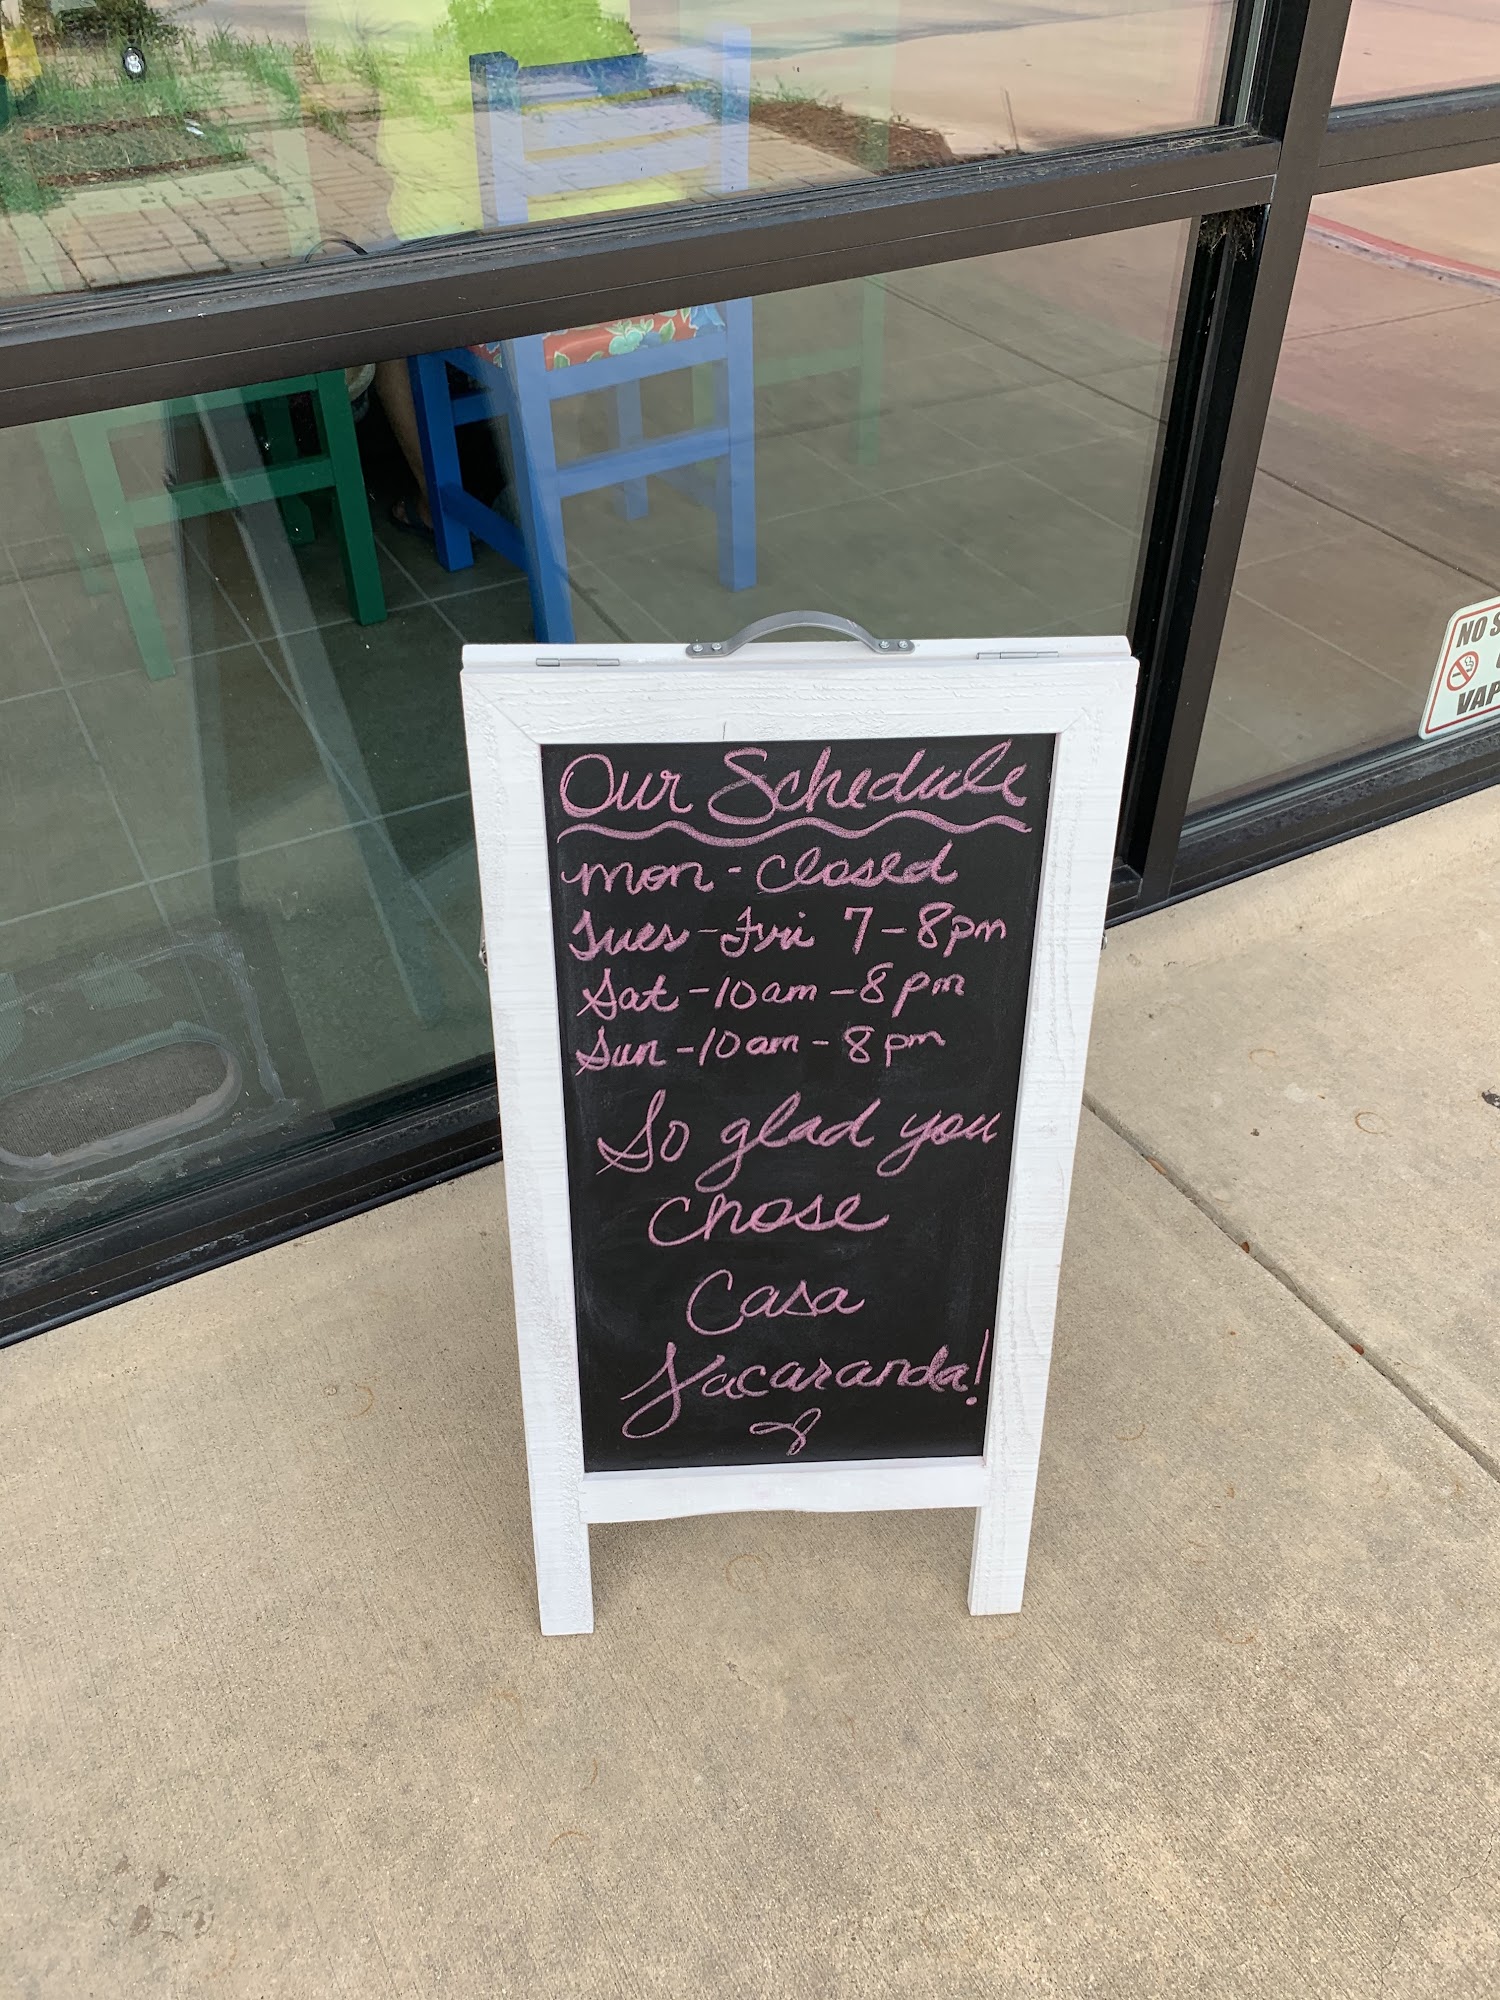 Our Schedule
Mon - Closed
Tues - Fri 7 - 8pm
Sat - 10am - 8pm
Sun - 10am - 8pm
So glad you
Chose
Casa
Jacaranda!
NO S
VAP